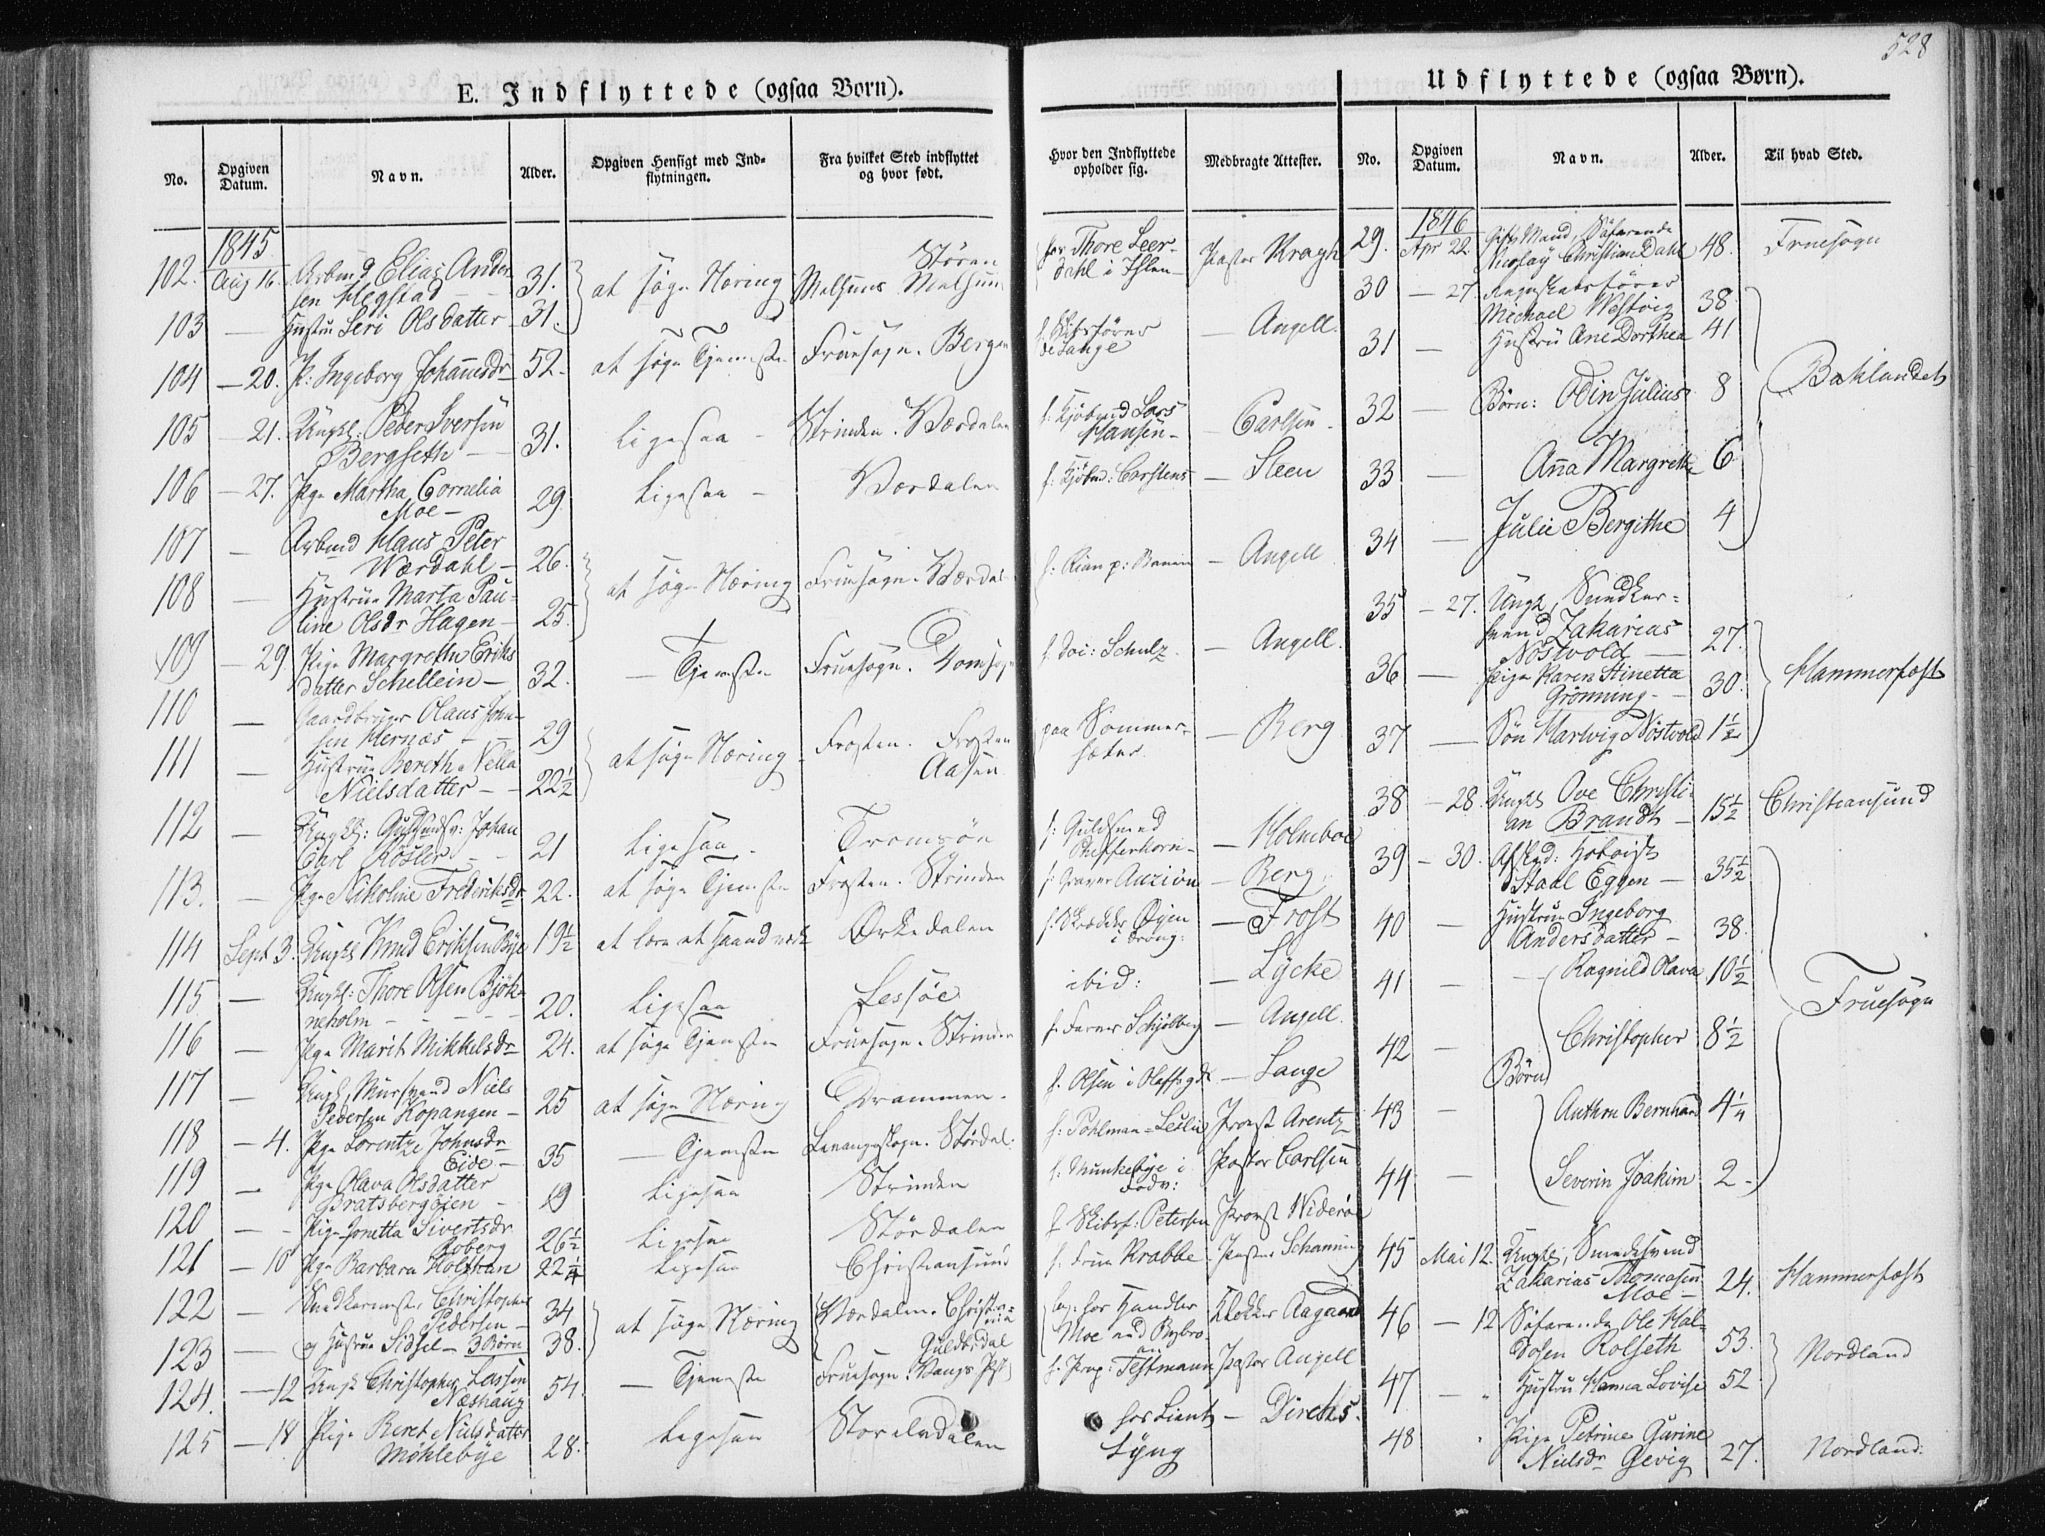 528
E. Indflyttede (ogsaa Børn).
Udflyttede (ogsaa Børn).
No. Opgiven Datum. Navn. Alder. Opgiven Hensigt med Indflytningen. Fra hvilket Sted indflyttet og hvor født. Hvor den Indflyttede opholder sig. Medbragte Attester.
No. Opgiven Datum. Navn. Alder. Til hvad Sted.
1845
102. Aug 16. Arbmd Elias Andersen Hegstad 31. at søge Næring Melhuus Støren Melhuus hos Thore Leerdahl i Ihlen Pastor Kragh
103 — Hustru Seri Olsdatter 31.
104 — 20. P: Ingeborg Johannsdr 52. at søge Tjeneste Fruesogn. Bergen f. Skibsfører de Lange — Angell.
105 — 21. Ungk: Peder Iversen Bergseth 31. Ligesaa Strinden. Værdalen f. Kjøbmd Lars Hansen — Carlsen
106 — 27. Pige Martha Cornelia Moe 29. Ligesaa Værdalen f. Kjøbmd: Carstens — Steen
107 — Arbmd Hans Peter Wærdahl 26. at søge Næring Fruesogn. Værdal f: Rian p: Banen — Angell
108 — Hustrue Marta Pauline Olsdr Hagen 25.
109 — 29 Pige Margrethe Eriksdatter Schellein 32. — Tjeneste Fruesogn. Domsogn f. Schulz — Angell.
110 — Gaardbruger Olaus Johnsen Hernæs 29 at søge Næring Frosten. Frosten paa Sommersæter — Berg
111 — Hustrue Bereth Nella Nielsdatter 22½ Aasen
112 — Ungk: Guldsmdsv: Johan Carl Rösler 21 Ligesaa Tromsøn f: Guldsmed Pfefferkorn — Holmboe
113. — Pige Nikoline Frederiksdr 22. at søge Tjeneste Frosten. Strinden f: Graver Auzion — Berg
114 Sept 3. Ungk Knud Eriksen Bye 19½ at lære et Haandværk Ørkedalen f: Skrædder Øyen — Frost
115 — Ungk: Thore Olsen Bjøkneholm 20. Ligesaa Lessøe ibid: — Lycke
116 — Pige Marit Mikkelsdr 24. at søge Tjeneste Fruesogn. Strinden f. Farver Schjølberg — Angell.
117 — Ungk, Mursvend Niels Pedersen Kopangen 25 at søge Næring Drammen f. Olsen i Olafsgd — Lange
118 — 4. Pige Lorentze Johnsdr Eide 35 — Tjeneste Størdal: f: Pohlman Provst Arentz
119 — Pige Olava Olsdatter Bratsbergøien 19 Ligesaa Strinden f. Munkebye i Pastor Carlsen
120 — Pige Jonetta Sivertsdr Roberg 26½ Ligesaa Størdalen f Skibsf: Petersen Provst Widerøe
121 — 10 Pige Barbara Holstan 22¼ Ligesaa Christiansund f. Frue Krabbe Pastor Schanning
122 — Christopher Pedersen 34 at søge Næring Værdalen. Christiania hos Handler Moe Klokker Aagaard
123 — og Hustrue Sidsel — 3 Børn 38. Guldbrdal
124. — 12 Ungk Christopher Lassen Næshaug 54 — Tjeneste Fruesogn. Vangs Pgl f. Prop: Testmann Pastor Angell
125 — 18 Pige Beret Nielsdatter Møhlebye 28. Ligesaa Storelvdalen hos Lieut Lyng — Direchs.
1846
29. Apr 22. Gift Mand, Søfarende Nicolay Christian Dahl 48. Fruesogn
30 — 27. Regnskabsfører Michael Westvig 38 Baklandet
31 — Hustru Ane Dorthea 41
32 — Børn: Odin Julius 8
33 — Anna Margrethe 6
34 — Julie Bergithe 4
35 — 27. Ungk, Zakarias Nøstvold 27. Hammerfest
36 — Pige Karen Stinetta Grønning 30.
37 — Søn Hartvig Nøstvold 1½
38 — 28. Ungk Ove Christian Brandt 15½ Christiansund
39 — 30. Afskd: Hoboist Staal Eggen 35½ Fruesogn
40 — Hustrue Ingeborg Andersdatter 38.
41 — Børn Ragnild Olava 10½
42 — Christopher 8½
43 — Anthon Bernhard 4¼
44 — Severin Joakim 2
45 Mai 12. Ungk, Smedesvend Zakarias Thomasen Moe 24. Hammerfest
46 — 12 Søfarende Ole Haldosen Rolseth 53. Nordland
47 — " Hustru Hanna Lovise 52
48 " Pige Petrine Gurine Nielsdr Gevig 27. Nordland.